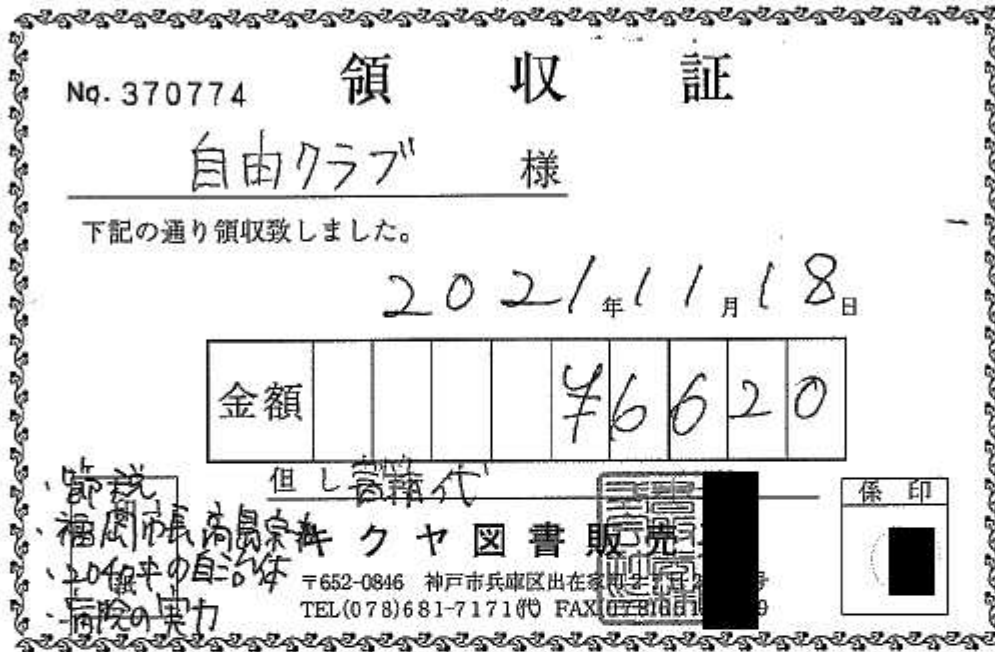 No. 370774 領収証
自由クラブ 様
下記の通り領収致しました。
2021年11月18日
金額 ¥6620
但し 書籍代
・節税
・福岡市長高島宗
・2040年の自治体
・病院の実力
キクヤ図書販売
〒652-0846 神戸市兵庫区出在家町2
TEL(078)681-7171㈹ FAX(078)
係印